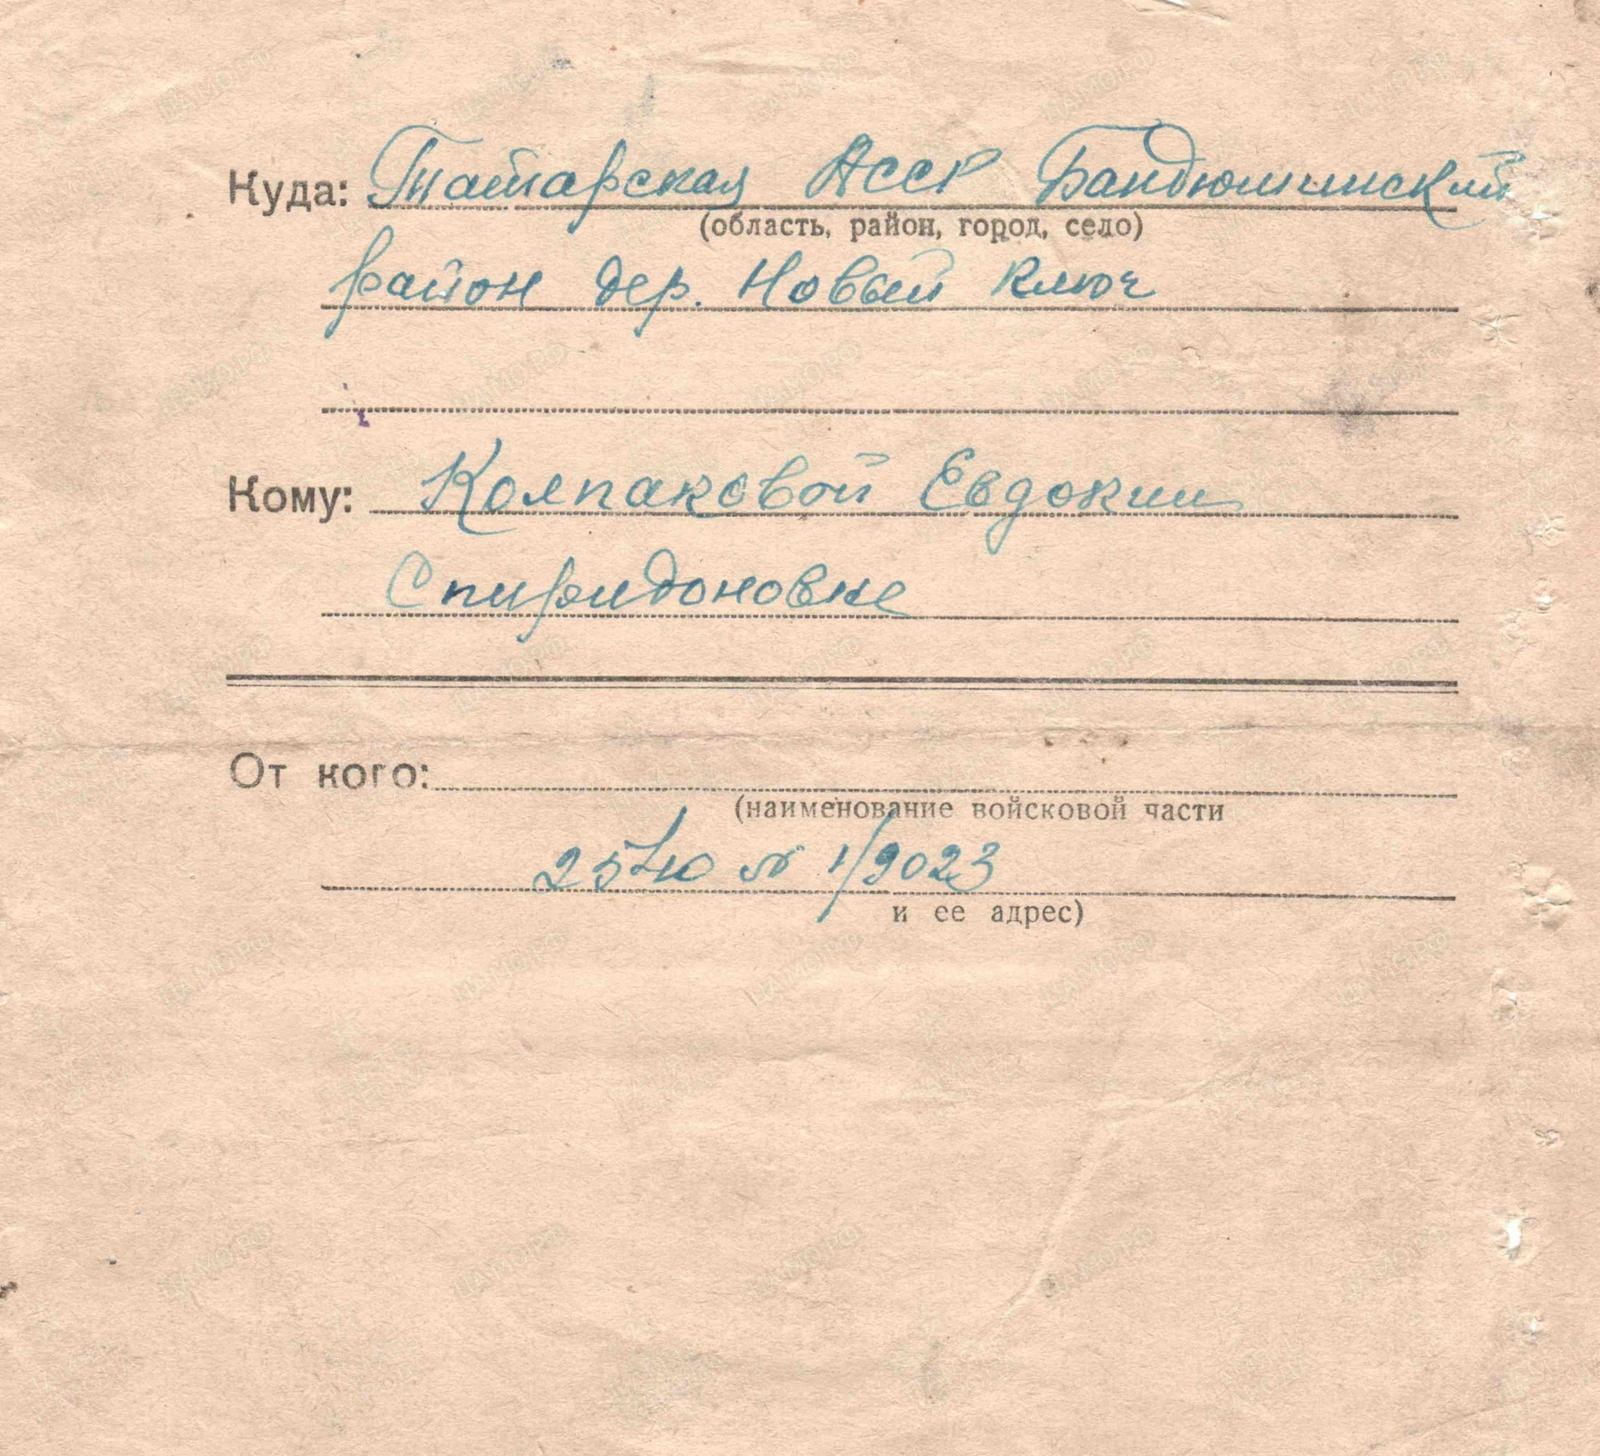 Куда: Татарская АССР Бандюшинский
(область, район, город, село)
район дер. Новый Ключ
Кому: Колпаковой Евдокии
Спиридоновне
От кого:
(наименование войсковой части
№ 1/9023
и ее адрес)